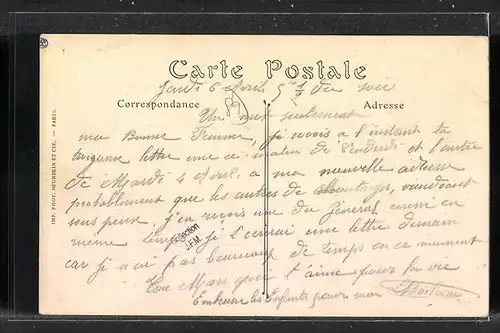 Carte Postale
Jeudi 6 Avril 5 h 1/2 du soir
Correspondance
Adresse
Un mot seulement
ma Bonne Femme, je reçois à l'instant ta
lettre une ce matin de Vendredi et l'autre
de Mardi 4 Avril à ma nouvelle adresse
probablement que les autres de
sous peu, j'en reçois une du Général aussi en
même temps. Je t'écrirai une lettre demain
car je n'ai pas beaucoup de temps en ce moment
Ton Mari qui t'aime pour la vie
Embrasse les Enfants pour moi
Collection
J.F.M.
IMP. PHOT. NEURDEIN ET CIE. — PARIS.